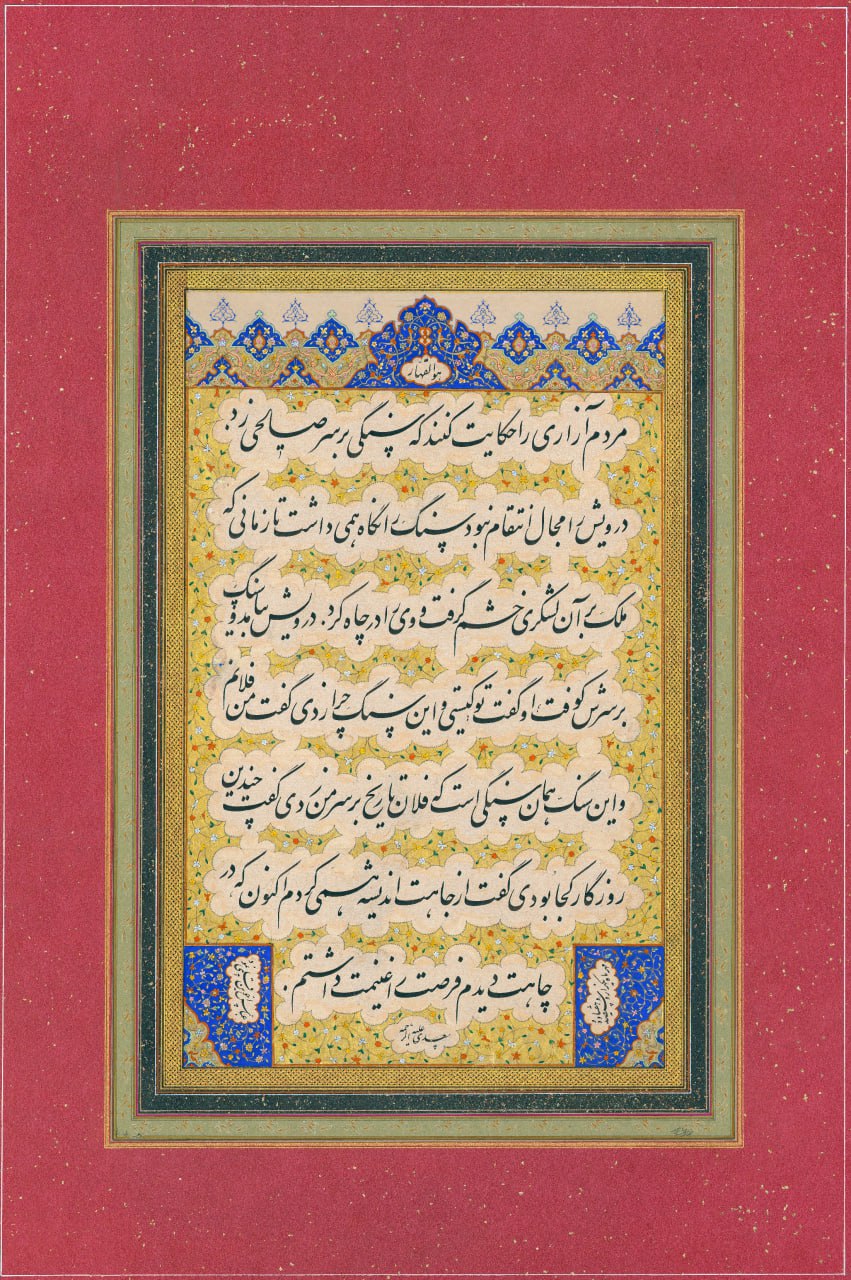 هوالقهار
مردم آزاری را حکایت کنند که سنگی بر سر صالحی زد.
درویش را مجال انتقام نبود سنگ را نگاه همی داشت تا زمانی که
ملک بر آن لشکری خشم گرفت و وی را در چاه کرد. درویش بیامد و سنگ
بر سرش کوفت او گفت تو کیستی و این سنگ چرا زدی گفت من فلانم
و این سنگ همان سنگی است که فلان تاریخ بر سر من زدی گفت چندین
روزگار کجا بودی گفت از جاهت اندیشه همی کردم اکنون که در
چاهت دیدم فرصت را غنیمت داشتم.
سعدی علیه الرحمه